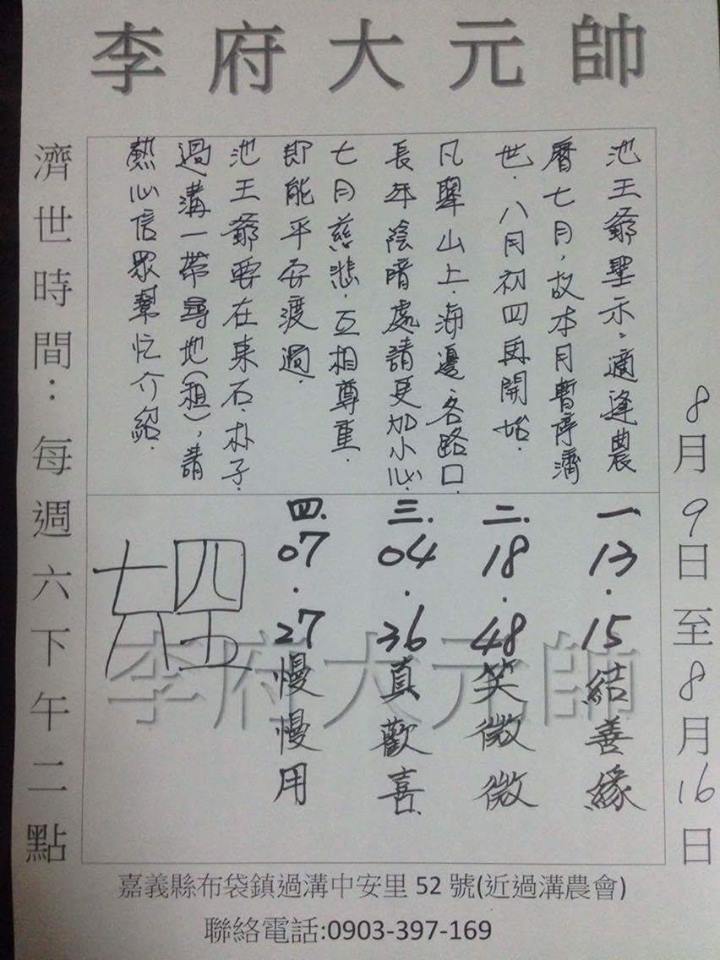 李府大元帥
8月9日至8月16日
池王爺聖示。適逢農
曆七月，故本月暫停濟
世．八月初四再開始．
凡舉山上．海邊．各路口．
長年陰暗處請更加小心．
七月慈悲．互相尊重．
即能平安渡過．
池王爺要在東石．朴子．
過溝一帶尋地(租)，請
熱心信眾幫忙介紹．
一
13．15 結善緣
二．
18．48 笑微微
三．
04．36 真歡喜．
四．
07．27 慢慢用
李府大元帥
濟世時間：每週六下午二點
嘉義縣布袋鎮過溝中安里 52 號(近過溝農會)
聯絡電話:0903-397-169